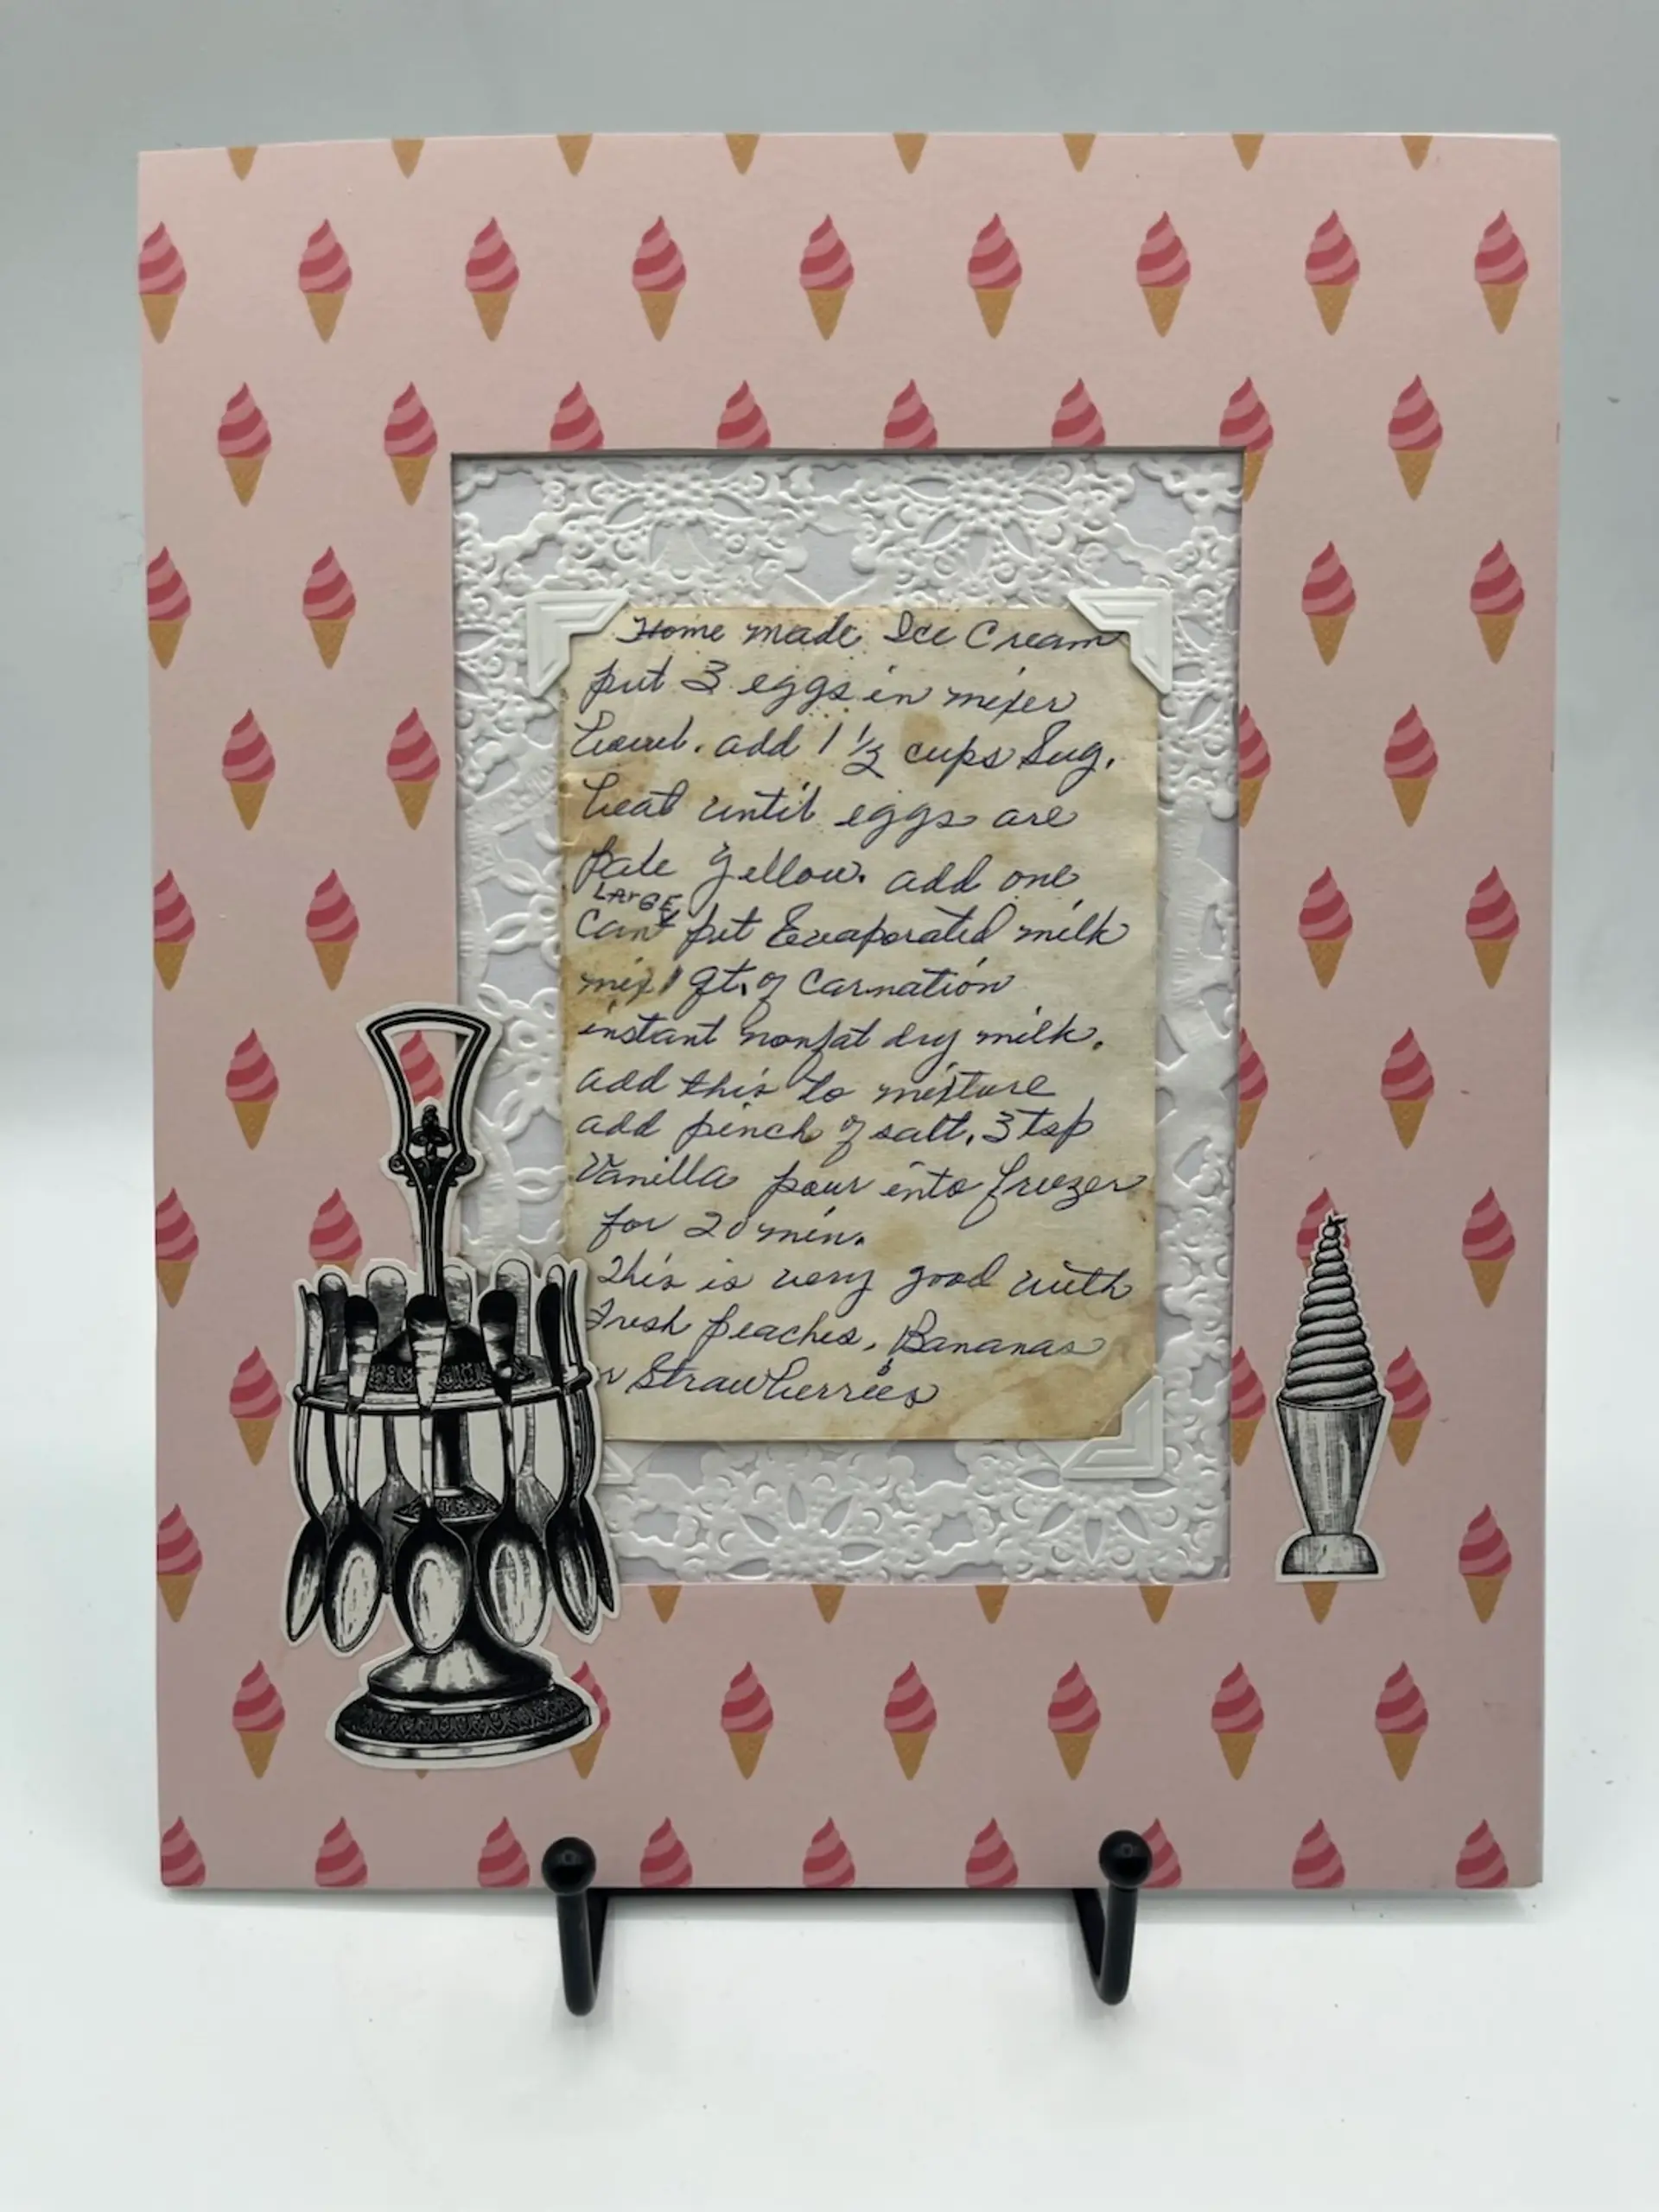 Home made Ice Cream
put 3 eggs in mixer
bowl. add 1 1/2 cups Sug.
beat until eggs are
pale yellow. add one
LArGE
Can pet Evaporated milk
mix 1 qt. of Carnation
instant nonfat dry milk.
add this to mixture
add pinch of salt. 3 tsp
Vanilla pour into freezer
for 20 min.
This is very good with
Fresh peaches, Bananas
Strawberries